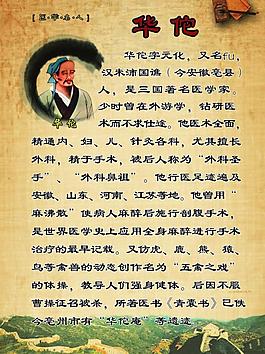 [医学名人]
华佗
华佗
华佗字元化，又名fu，
汉朱沛国谯（今安徽亳县）
人，是三国著名医学家。
少时曾在外游学，钻研医
术而不求仕途。他医术全面，
精通内、妇、儿、针灸各科，尤其擅长
外科，精于手术，被后人称为“外科圣
手”、“外科鼻祖”。他行医足迹遍及
安徽、山东、河南、江苏等地。他曾用“
麻沸散”使病人麻醉后施行剖腹手术，
是世界医学史上应用全身麻醉进行手术
治疗的最早记载。又仿虎、鹿、熊、猿、
鸟等禽兽的动态创作名为“五禽之戏”
的体操，教导人们强身健体。后因不服
曹操征召被杀，所著医书《青囊书》已佚
今亳州市有“华佗庵”等遗迹。